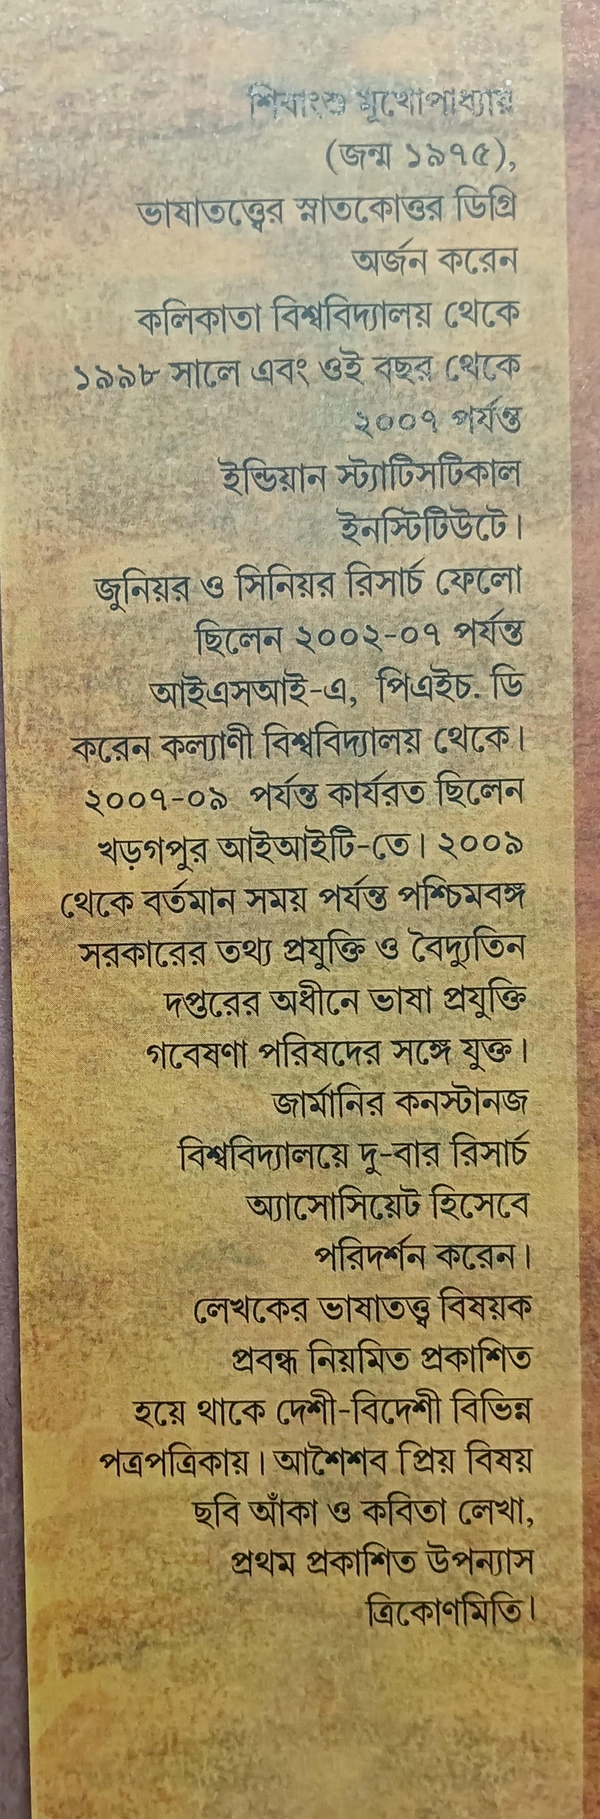 শিবাংশু মুখোপাধ্যায়
(জন্ম ১৯৭৫),
ভাষাতত্ত্বের স্নাতকোত্তর ডিগ্রি
অর্জন করেন
কলিকাতা বিশ্ববিদ্যালয় থেকে
১৯৯৮ সালে এবং ওই বছর থেকে
২০০৭ পর্যন্ত
ইন্ডিয়ান স্ট্যাটিসটিকাল
ইনস্টিটিউটে।
জুনিয়র ও সিনিয়র রিসার্চ ফেলো
ছিলেন ২০০২-০৭ পর্যন্ত
আইএসআই-এ, পিএইচ. ডি
করেন কল্যাণী বিশ্ববিদ্যালয় থেকে।
২০০৭-০৯ পর্যন্ত কার্যরত ছিলেন
খড়গপুর আইআইটি-তে। ২০০৯
থেকে বর্তমান সময় পর্যন্ত পশ্চিমবঙ্গ
সরকারের তথ্য প্রযুক্তি ও বৈদ্যুতিন
দপ্তরের অধীনে ভাষা প্রযুক্তি
গবেষণা পরিষদের সঙ্গে যুক্ত।
জার্মানির কনস্টানজ
বিশ্ববিদ্যালয়ে দু-বার রিসার্চ
অ্যাসোসিয়েট হিসেবে
পরিদর্শন করেন।
লেখকের ভাষাতত্ত্ব বিষয়ক
প্রবন্ধ নিয়মিত প্রকাশিত
হয়ে থাকে দেশী-বিদেশী বিভিন্ন
পত্রপত্রিকায়। আশৈশব প্রিয় বিষয়
ছবি আঁকা ও কবিতা লেখা,
প্রথম প্রকাশিত উপন্যাস
ত্রিকোণমিতি।